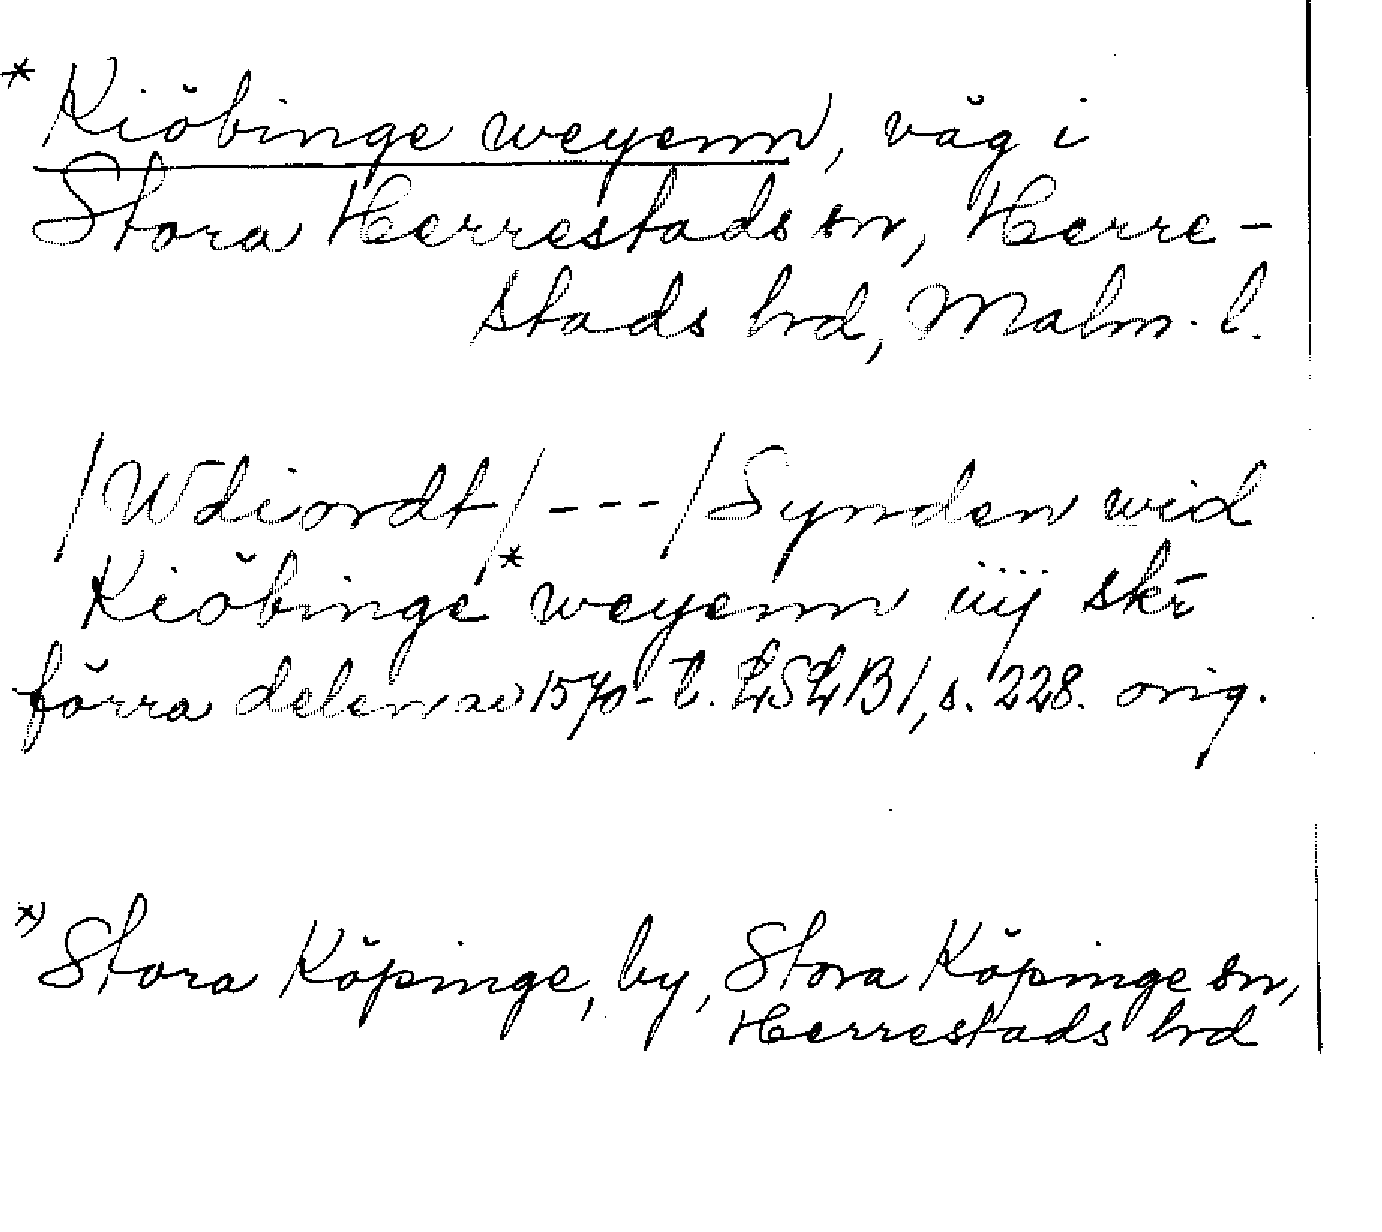 * Kiöbinge weyenn, väg i
Stora Herrestads sn, Herre-
stads hd, Malm. l.
/Wdiordt/---/Synden wid
Kiöbinge* weyenn iiij skr
förra delen av 1570-t. LSLB1, s. 228. orig.
x) Stora Köpinge, by, Stora Köpinge sn,
Herrestads hd